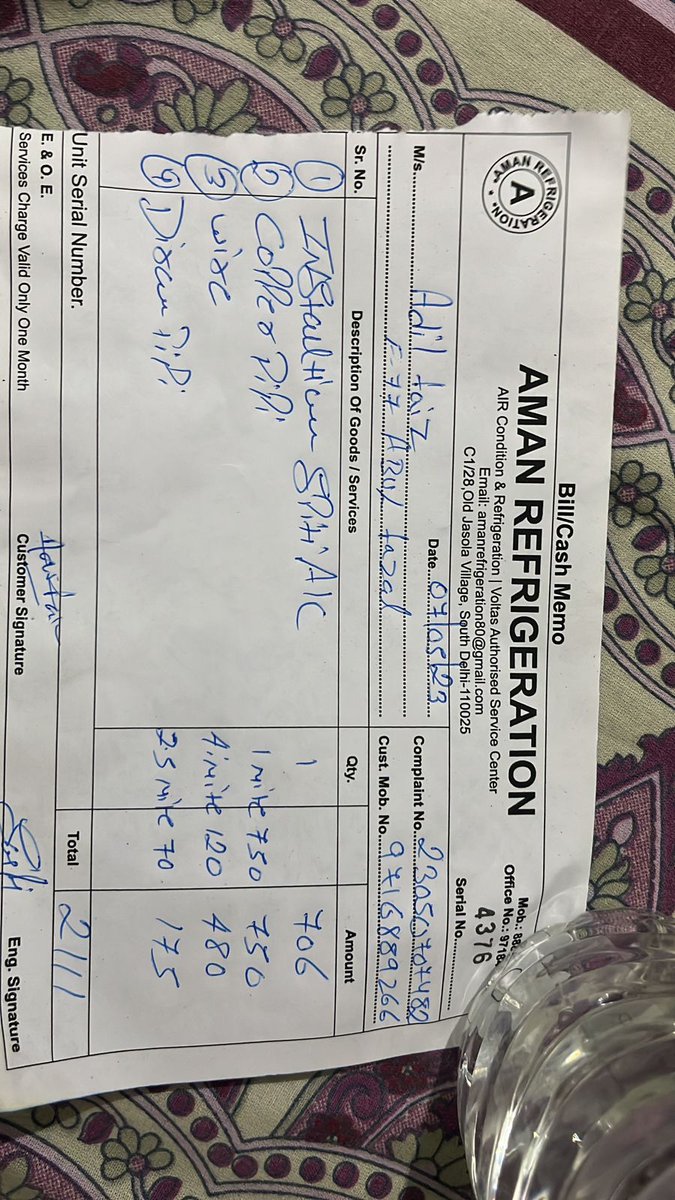 Bill/Cash Memo
AMAN REFRIGERATION
A
AMAN REFRIGERATION
AIR Condition & Refrigeration | Voltas Authorised Service Center
Email: amanrefrigeration80@gmail.com
C1/28,Old Jasola Village, South Delhi-110025
Mob.: 88
Office No.: 9718
4376
Serial No.
Date 07/05/23
Complaint No. 23050707482
M/s. Adil faiz
F-77 Abul fazal
Cust. Mob. No. 9716889266
Sr. No. Description Of Goods / Services Qty. Amount
1 INStaultion SPliti A/C 1 706
2 Copper PiPi 1 mite 750 750
3 wire 4 mite 120 480
4 Dixan PiPi 2.5 mite 70 175
Unit Serial Number. Total 2111
E. & O. E.
Services Charge Valid Only One Month
Customer Signature
Eng. Signature